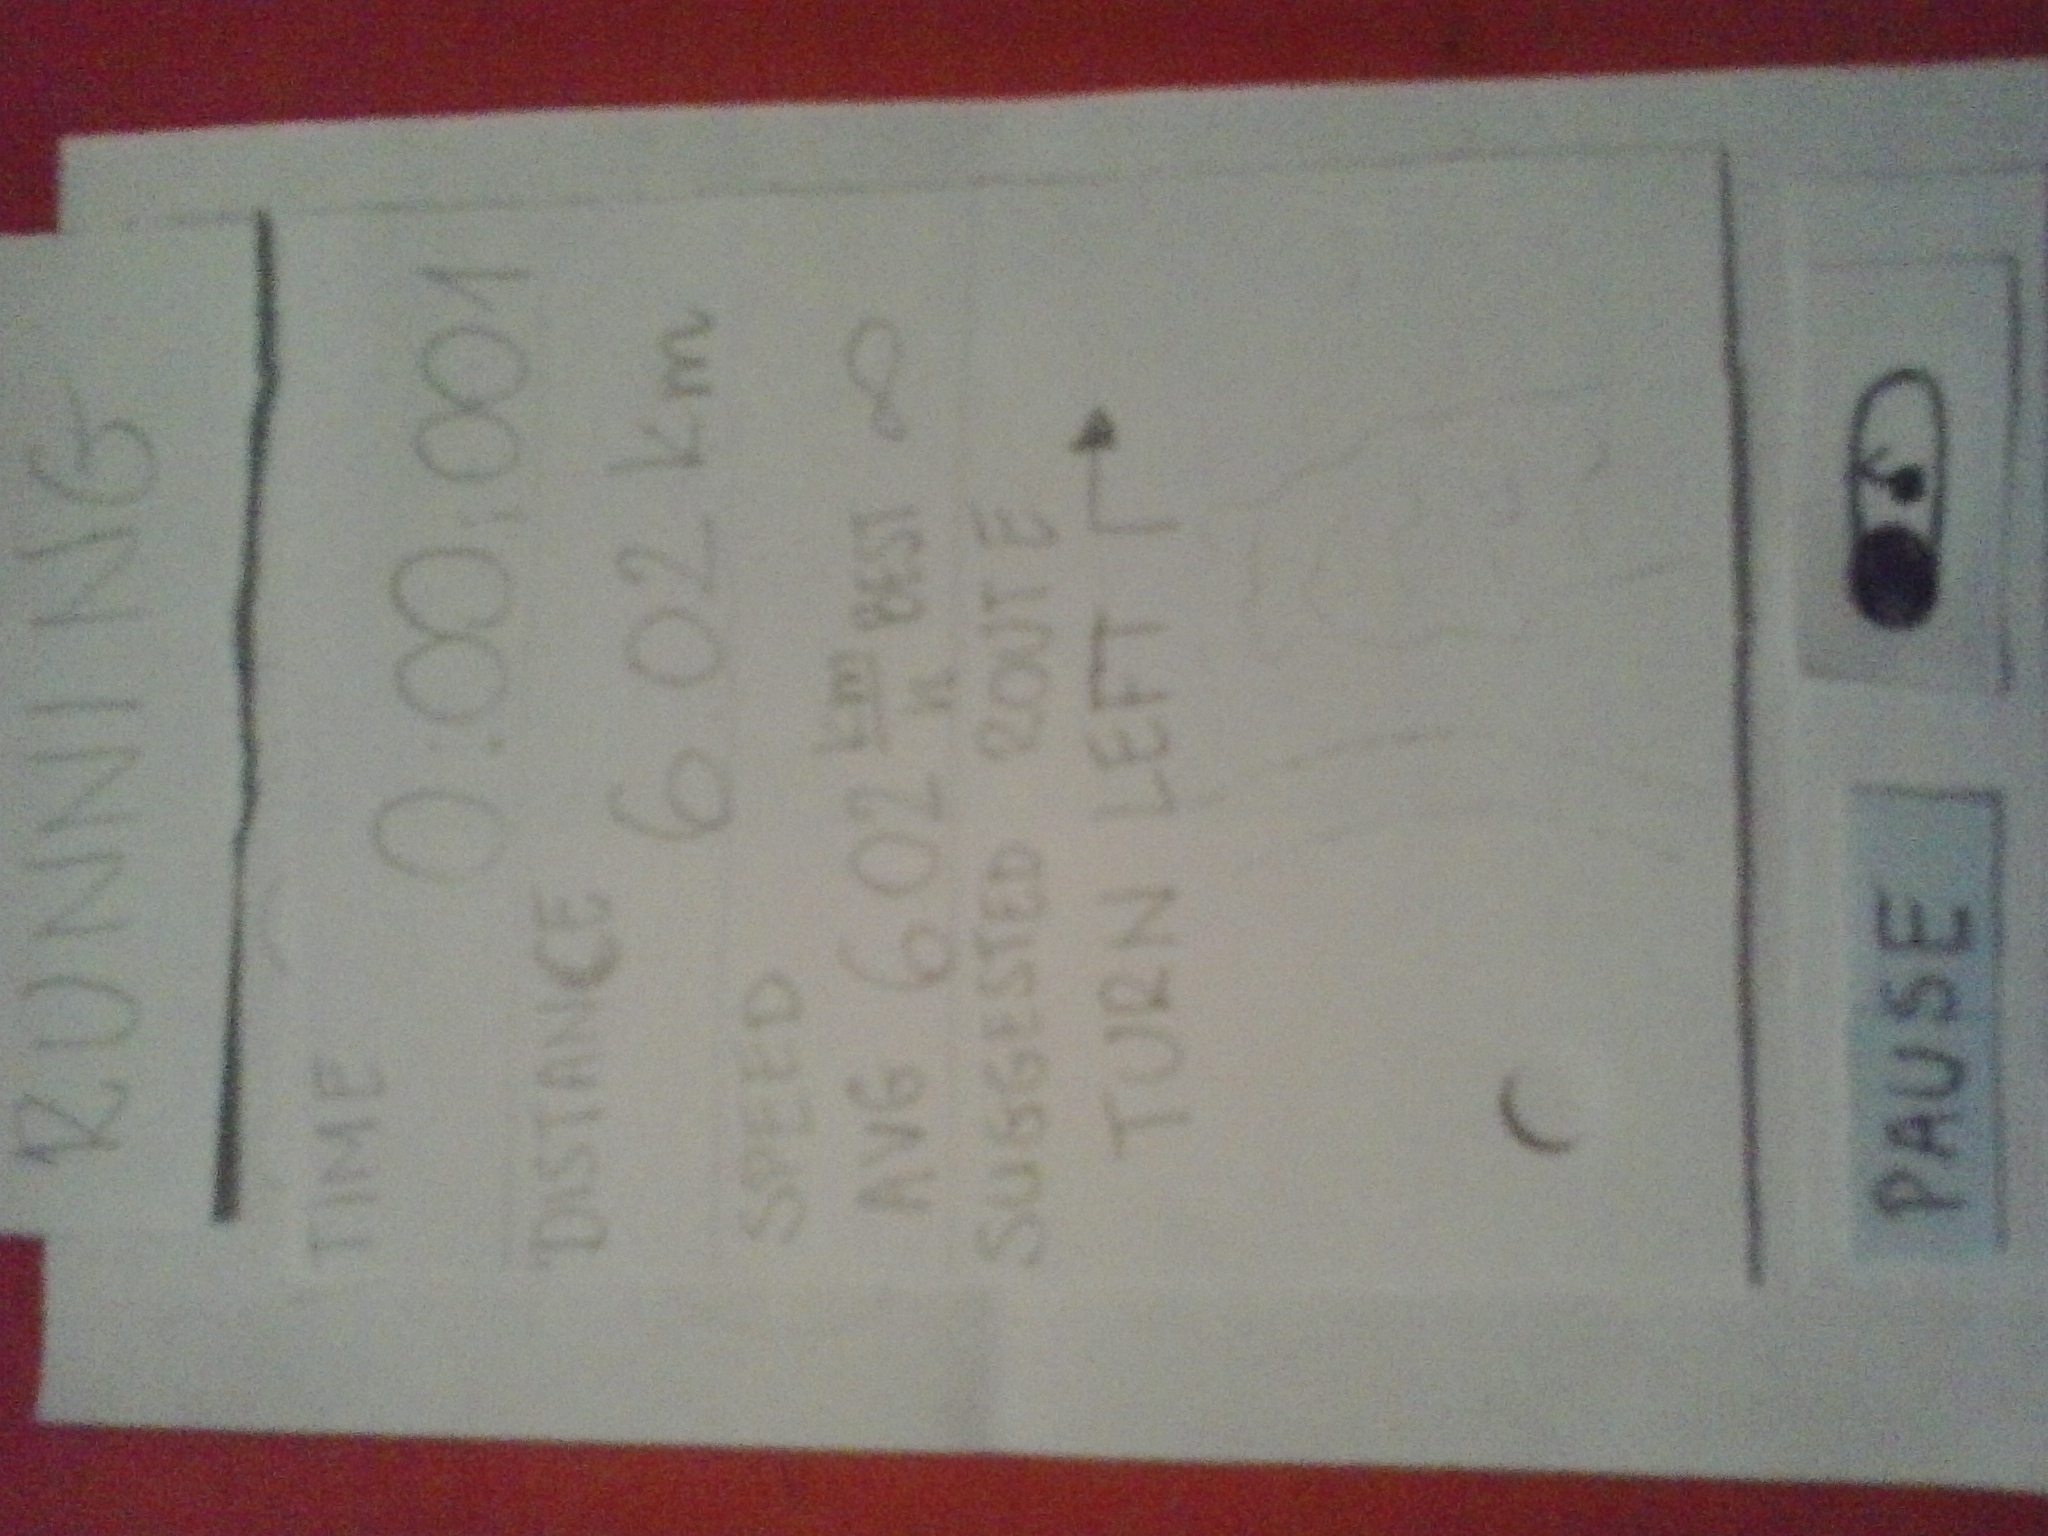 RUNNING
TIME
0:00:001
DISTANCE
6.02 km
SPEED
AVG 6.02 km/h BEST ∞
SUGGESTED ROUTE
TURN LEFT
PAUSE